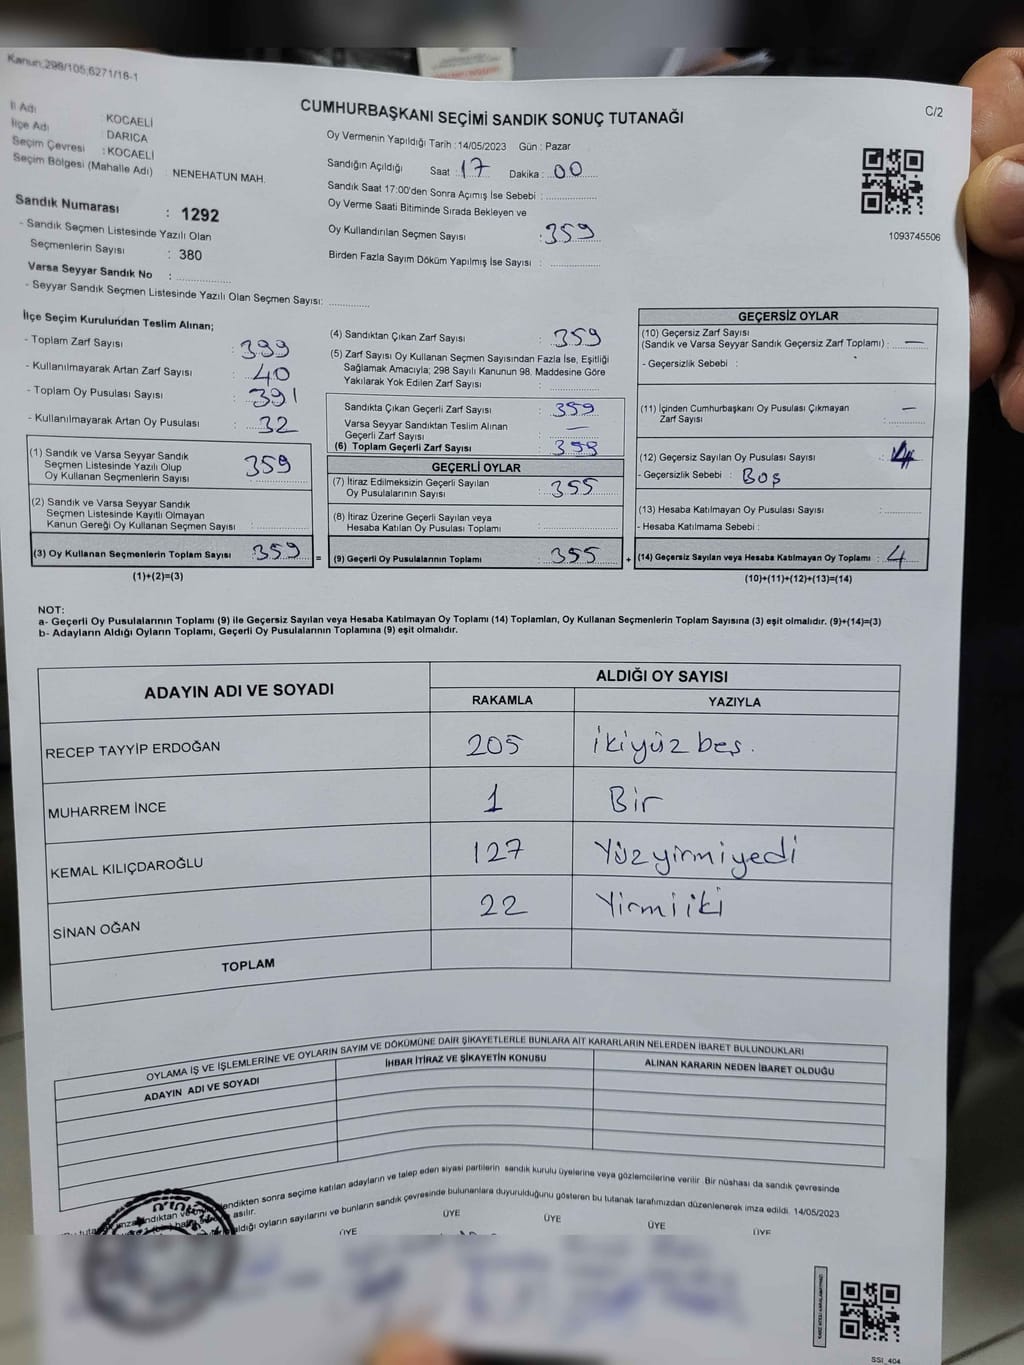 Kanun;298/105;6271/18-1
C/2
CUMHURBAŞKANI SEÇİMİ SANDIK SONUÇ TUTANAĞI
İl Adı : KOCAELİ
İlçe Adı : DARICA
Seçim Çevresi : KOCAELİ
Seçim Bölgesi (Mahalle Adı) : NENEHATUN MAH.
Sandık Numarası : 1292
- Sandık Seçmen Listesinde Yazılı Olan
Seçmenlerin Sayısı : 380
Varsa Seyyar Sandık No :
- Seyyar Sandık Seçmen Listesinde Yazılı Olan Seçmen Sayısı:
Oy Vermenin Yapıldığı Tarih :14/05/2023 Gün : Pazar
Sandığın Açıldığı Saat : 17 Dakika : 00
Sandık Saat 17:00'den Sonra Açımış İse Sebebi :
Oy Verme Saati Bitiminde Sırada Bekleyen ve
Oy Kullandırılan Seçmen Sayısı : 359
Birden Fazla Sayım Döküm Yapılmış İse Sayısı :
1093745506
İlçe Seçim Kurulundan Teslim Alınan;
- Toplam Zarf Sayısı : 399
- Kullanılmayarak Artan Zarf Sayısı : 40
- Toplam Oy Pusulası Sayısı : 391
- Kullanılmayarak Artan Oy Pusulası : 32
(1) Sandık ve Varsa Seyyar Sandık
Seçmen Listesinde Yazılı Olup
Oy Kullanan Seçmenlerin Sayısı : 359
(2) Sandık ve Varsa Seyyar Sandık
Seçmen Listesinde Kayıtlı Olmayan
Kanun Gereği Oy Kullanan Seçmen Sayısı :
(3) Oy Kullanan Seçmenlerin Toplam Sayısı : 359 =
(1)+(2)=(3)
(4) Sandıktan Çıkan Zarf Sayısı : 359
(5) Zarf Sayısı Oy Kullanan Seçmen Sayısından Fazla İse, Eşitliği
Sağlamak Amacıyla; 298 Sayılı Kanunun 98. Maddesine Göre
Yakılarak Yok Edilen Zarf Sayısı :
Sandıkta Çıkan Geçerli Zarf Sayısı : 359
Varsa Seyyar Sandıktan Teslim Alınan
Geçerli Zarf Sayısı : —
(6) Toplam Geçerli Zarf Sayısı : 359
GEÇERLİ OYLAR
(7) İtiraz Edilmeksizin Geçerli Sayılan
Oy Pusulalarının Sayısı : 355
(8) İtiraz Üzerine Geçerli Sayılan veya
Hesaba Katılan Oy Pusulası Toplamı :
(9) Geçerli Oy Pusulalarının Toplamı : 355 +
GEÇERSİZ OYLAR
(10) Geçersiz Zarf Sayısı
(Sandık ve Varsa Seyyar Sandık Geçersiz Zarf Toplamı) : —
- Geçersizlik Sebebi :
(11) İçinden Cumhurbaşkanı Oy Pusulası Çıkmayan
Zarf Sayısı : —
(12) Geçersiz Sayılan Oy Pusulası Sayısı : 4
- Geçersizlik Sebebi : Boş
(13) Hesaba Katılmayan Oy Pusulası Sayısı :
- Hesaba Katılmama Sebebi :
(14) Geçersiz Sayılan veya Hesaba Katılmayan Oy Toplamı : 4
(10)+(11)+(12)+(13)=(14)
NOT:
a- Geçerli Oy Pusulalarının Toplamı (9) ile Geçersiz Sayılan veya Hesaba Katılmayan Oy Toplamı (14) Toplamları, Oy Kullanan Seçmenlerin Toplam Sayısına (3) eşit olmalıdır. (9)+(14)=(3)
b- Adayların Aldığı Oyların Toplamı, Geçerli Oy Pusulalarının Toplamına (9) eşit olmalıdır.
ADAYIN ADI VE SOYADI ALDIĞI OY SAYISI
RAKAMLA YAZIYLA
RECEP TAYYİP ERDOĞAN 205 ikiyüz beş.
MUHARREM İNCE 1 Bir
KEMAL KILIÇDAROĞLU 127 Yüzyirmiyedi
SİNAN OĞAN 22 Yirmiiki
TOPLAM
OYLAMA İŞ VE İŞLEMLERİNE VE OYLARIN SAYIM VE DÖKÜMÜNE DAİR ŞİKAYETLERLE BUNLARA AİT KARARLARIN NELERDEN İBARET BULUNDUKLARI
ADAYIN ADI VE SOYADI İHBAR İTİRAZ VE ŞİKAYETİN KONUSU ALINAN KARARIN NEDEN İBARET OLDUĞU
sonra seçime katılan adayların ve talep eden siyasi partilerin sandık kurulu üyelerine veya gözlemcilerine verilir. Bir nüshası da sandık çevresinde
asılır.
aldığı oyların sayılarını ve bunların sandık çevresinde bulunanlara duyurulduğunu gösteren bu tutanak tarafımızdan düzenlenerek imza edildi. 14/05/2023
ÜYE ÜYE ÜYE ÜYE ÜYE
SSI_404